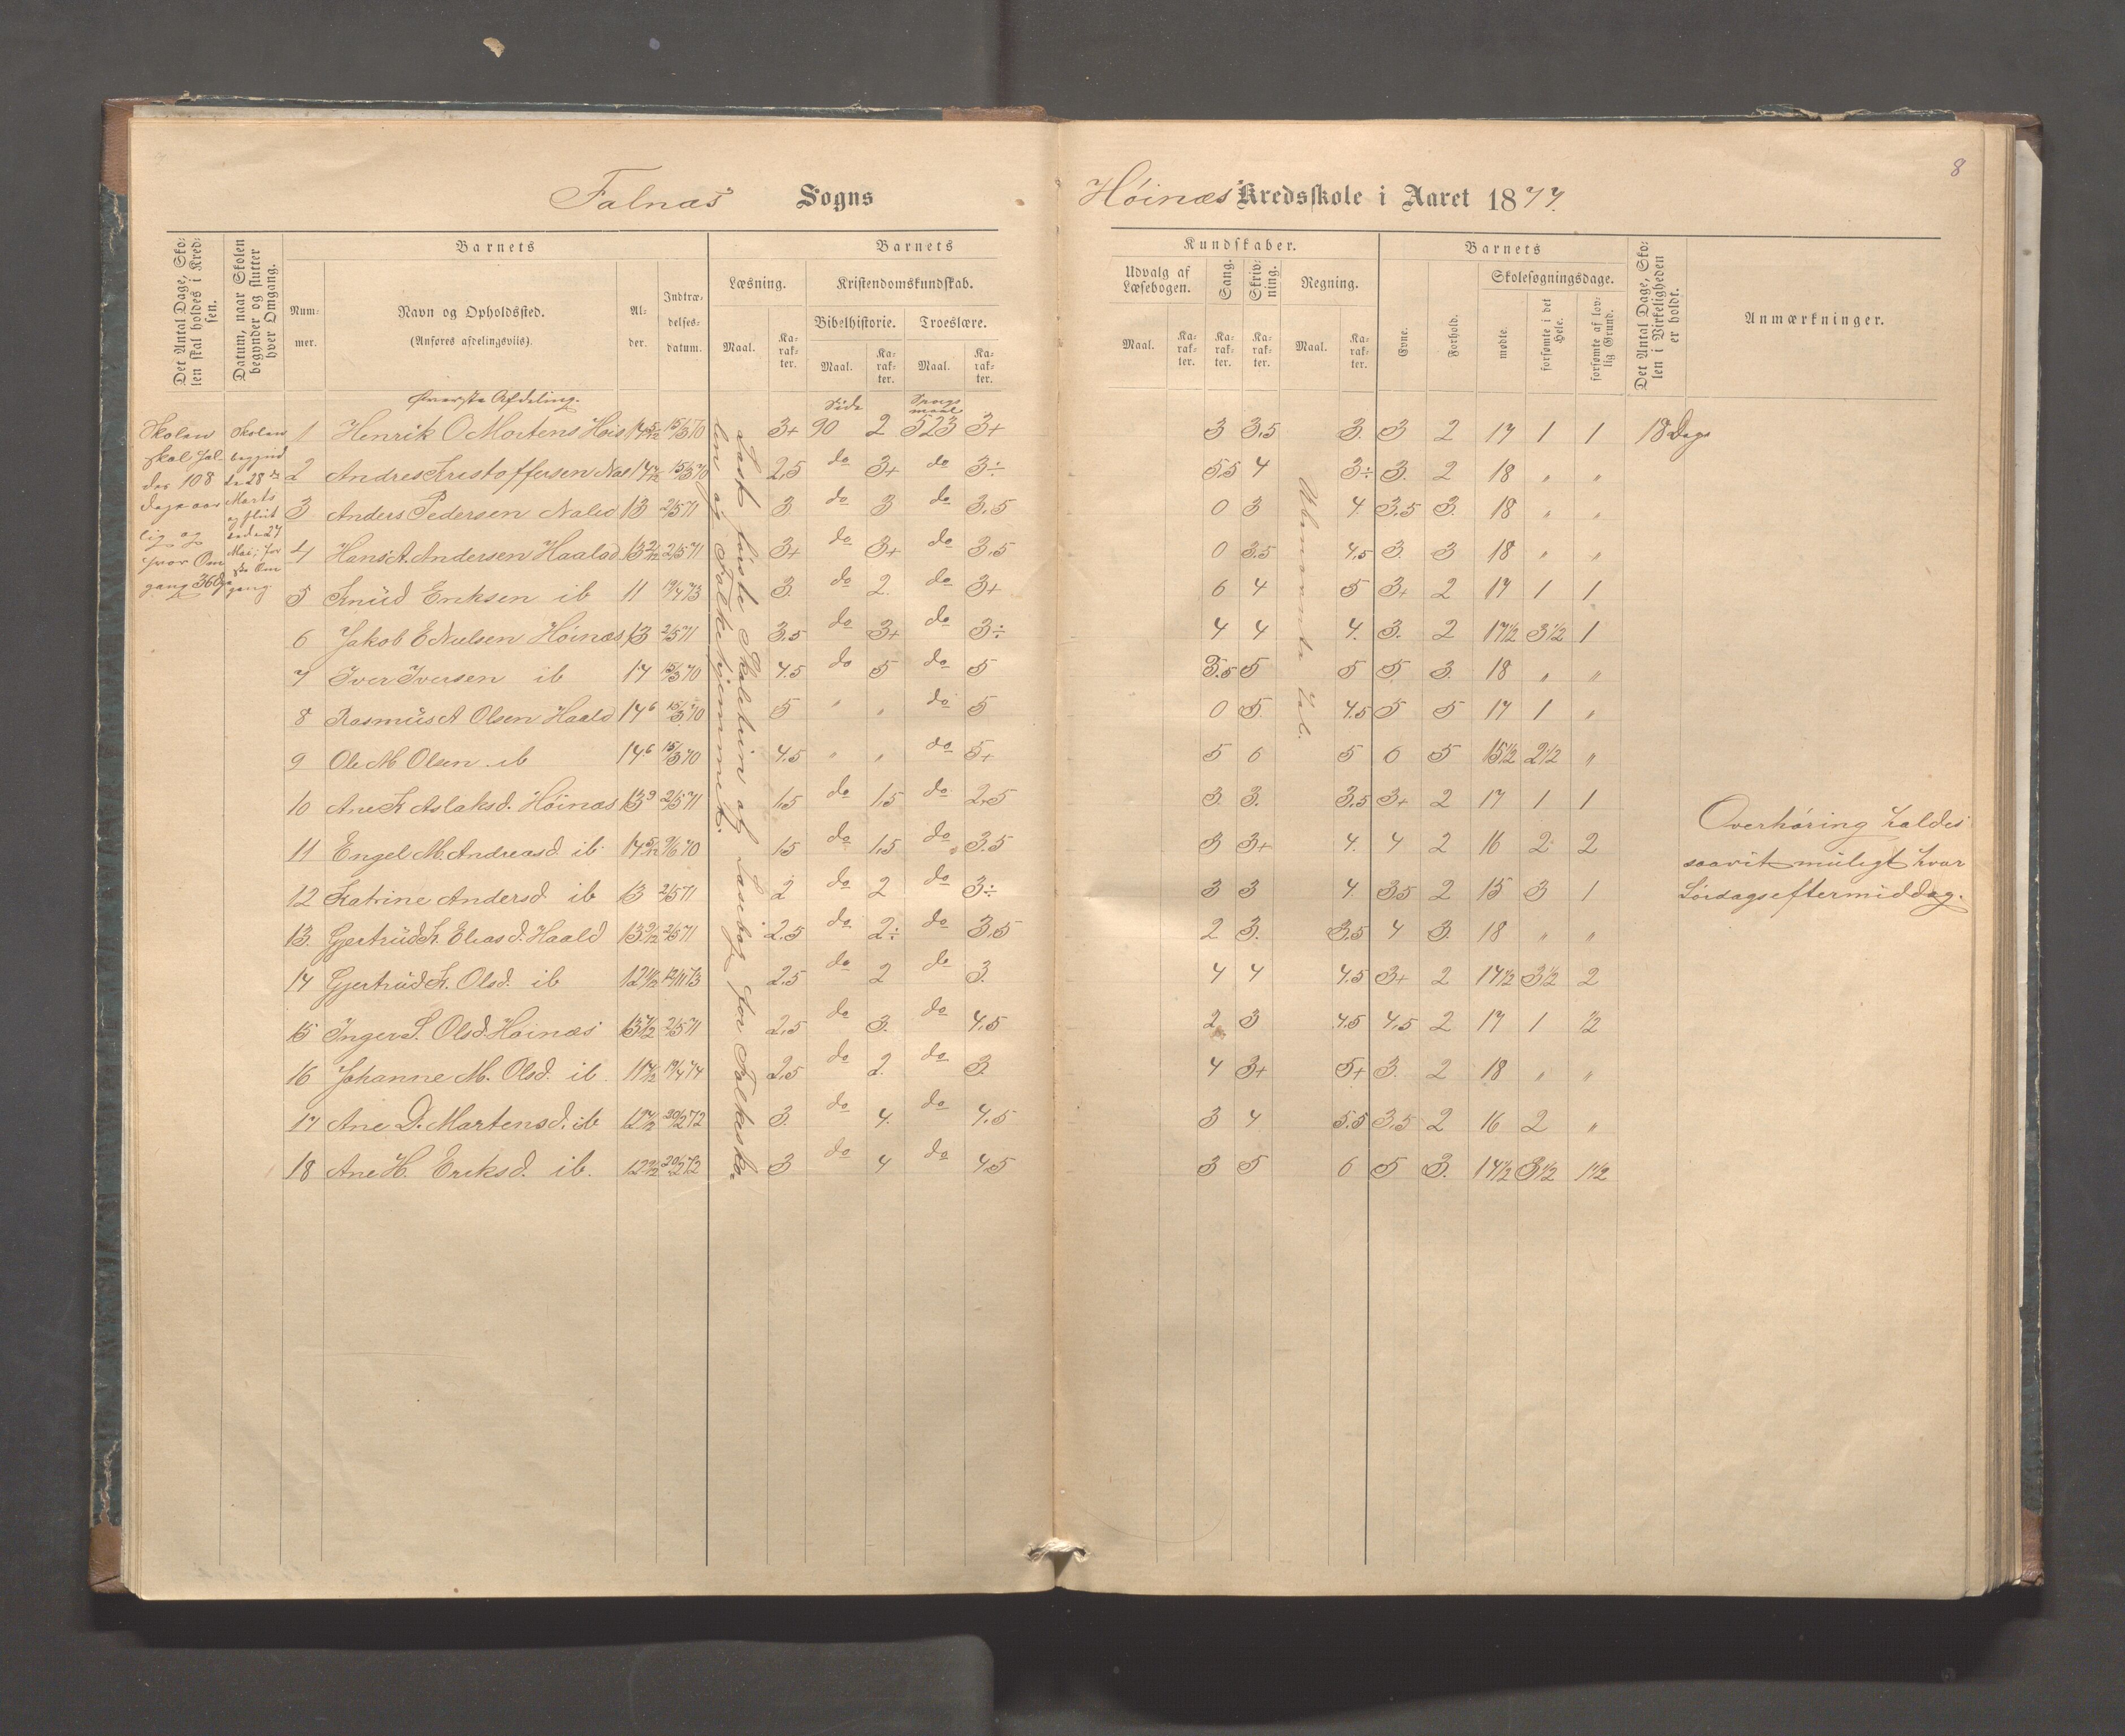 8
Falnæs Sogns
Høinæs Kredsskole i Aaret 1877.
Det Antal Dage, Skolen skal holdes i Kredsen.
Datum, naar Skolen begynder og slutter hver Omgang.
Barnets
Nummer.
Navn og Opholdssted.
(Anføres afdelingsvils).
Alder.
Indtrædelsesdatum.
Barnets
Læsning.
Maal.
Karakter.
Kristendomskundskab.
Bibelhistorie.
Maal.
Karakter.
Troeslære.
Maal.
Karakter.
Kundskaber.
Udvalg af Læsebogen.
Maal.
Karakter.
Sang.
Karakter.
Skrivning.
Karakter.
Regning.
Maal.
Karakter.
Barnets
Evne.
Forhold.
Skolesøgningsdage.
mødte.
forsømte i det Hele.
forsømte af lovlig Grund.
Det Antal Dage, Skolen i Virkeligheden er holdt.
Anmærkninger.
Øverste Afdeling.
Side
Spørgsmaal
Skolen
skal hol-
des 108
Dage aar
lig og
hver Om
gang 36 Dge
Skolen
begynd
te 28de
Marts
og slut
tede 27
Mai; før
ste Om
gang
1 Henrik O Mortens Høis 14 5/12 15/3 70 3+ 90 2 523 3+ 3 3,5 3. 3 2 17 1 1 18 Dage
2 Andres Kristoffersen Næs 14 7/12 15/3 70 2,5 do 3+ do 3÷ 5,5 4 3÷ 3. 2 18 " "
3 Anders Pedersen Nalid 13 2/5 71 3 do 3 do 3,5 0 3 4 3,5 3. 18 " "
4 Hans A. Andersen Haaland 13 2/12 2/5 71 3+ do 3+ do 3,5 0 3,5 4,5 3. 3 18 " "
5 Knud Eriksen ib 11 19/4 73 3. do 2. do 3+ 6 4 5 3+ 2 17 1 1
6 Jakob E Nielsen Høinæs 13 2/5 71 3,5 do 3+ do 3÷ 4 4 4. 3. 2 14 1/2 3 1/2 1
7 Iver Iversen ib 14 15/3 70 4.5 do 5 do 5 3.5 5 5 5 3. 18 " "
8 Rasmus A Olsen Haald 14 6 15/3 70 5 " " do 5 0 5. 4.5 5 5 17 1 "
9 Ole M Olsen ib 14 6 15/3 70 4.5 " " do 5+ 5 6 5 6 5 15 1/2 2 1/2 "
10 Ane K Aslaksd. Høinæs 13 9 2/5 71 1,5 do 1,5 do 2,5 3. 3. 3,5 3+ 2 17 1 1
11 Engel M. Andreasd ib 14 5/12 9/6 70 1,5 do 1,5 do 3.5 3 3+ 4. 4 2 16 2 2
12 Katrine Andersd ib 13 2/5 71 2 do 2 do 3÷ 3 3 4. 3,5 2 15 3 1
13. Gjertrud K. Eliasd. Haald 13 9/12 2/5 71 2,5 do 2÷ do 3,5 2 3. 3,5 4 3. 18 " "
14 Gjertrud K. Olsd. ib 12 11/12 12/11 73 2,5 do 2 do 3. 4 4 4.5 3+ 2 14 1/2 3 1/2 2
15 Inger S. Olsd. Høinæs 13 7/12 2/5 71 2,5 do 3. do 4,5 2 3 4,5 4,5 2 17 1 1/2
16 Johanne M. Olsd. ib. 11 7/12 19/4 74 2,5 do 2. do 3. 4 3+ 5+ 3. 2 18 " "
17 Ane D. Martensd. ib 12 7/12 20/2 72 3. do 4. do 4.5 3 4 5.5 3,5 2 16 2 "
18 Ane H. Eriksd. ib. 12 9/12 20/2 72 3 do 4 do 4,5 3 5 6 5 3. 14 1/2 3 1/2 1 1/2
Læst første Skoletrin af Læsebog for Folkesko-
len og Folkehjemmet.
Ubenævnte Tal.
Overhøring holdes
saavit muligt hver
Lørdagseftermiddag.